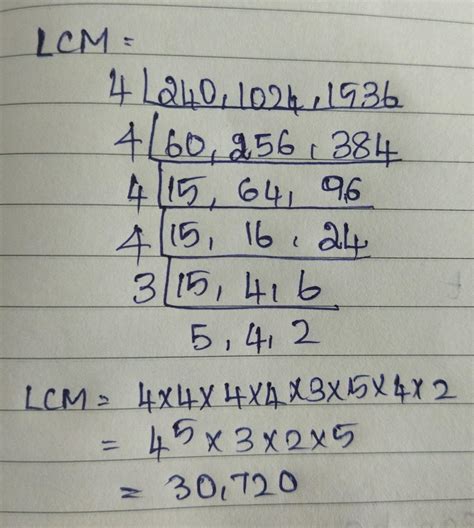 LCM =
4 | 240, 1024, 1536
4 | 60, 256, 384
4 | 15, 64, 96
4 | 15, 16, 24
3 | 15, 4, 6
5, 4, 2
LCM = 4×4×4×4×3×5×4×2
= 4⁵×3×2×5
= 30,720